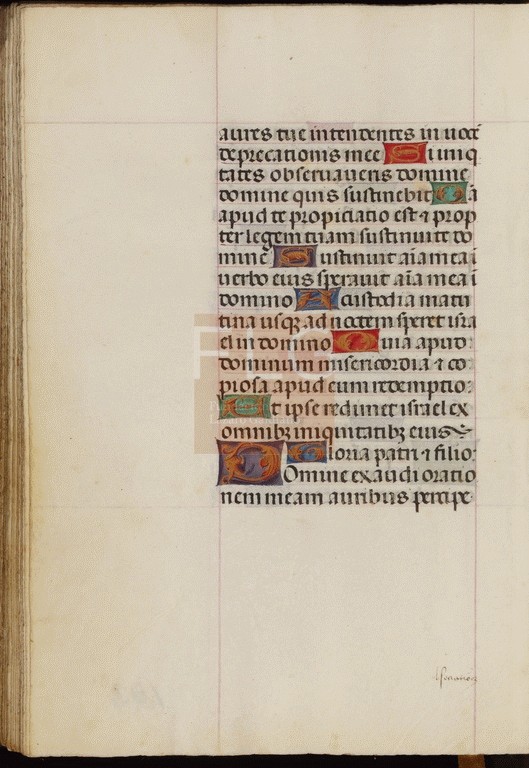 aures tue intendentes in uocē
deprecationis mee Si iniq
tates obseruaueris domine
domine quis sustinebit Q̄a
apud te propiciatio est ⁊ prop
ter legem tuam sustinui te do
mine Sustinuit aīa mea ī
uerbo eius sperauit aīa mea ī
domino A custodia matu
tina usqȝ ad noctem speret isra
el in domino Quia apud
dominum misericordia ⁊ co
piosa apud eum redemptio
Et ipse redimet israel ex
omnibȝ iniquitatibȝ eius
Gloria patri ⁊ filio
Domine exaudi oratio
nem meam auribus percipe